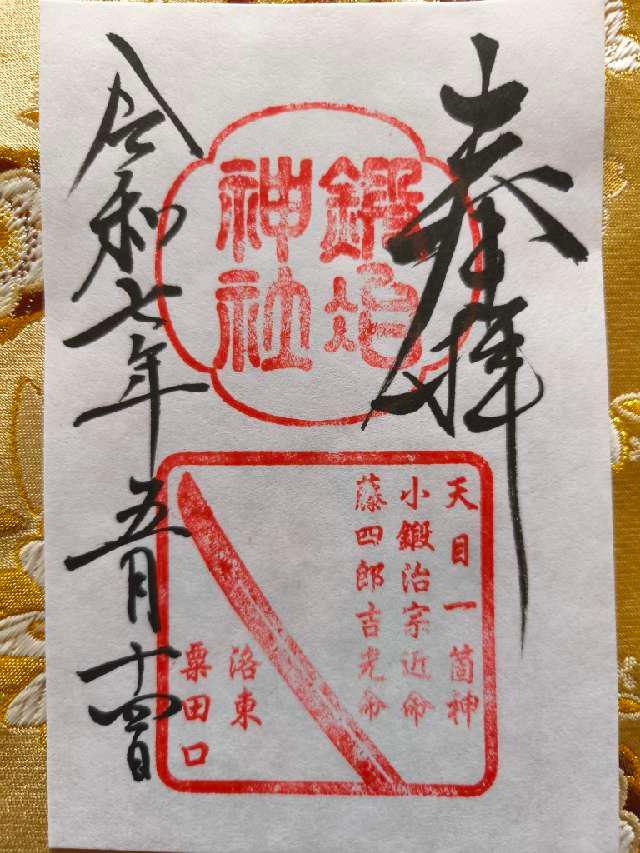 奉拝
鍛冶
神社
天目一箇神
小鍛治宗近命
藤四郎吉光命
洛東
粟田口
令和七年五月十四日